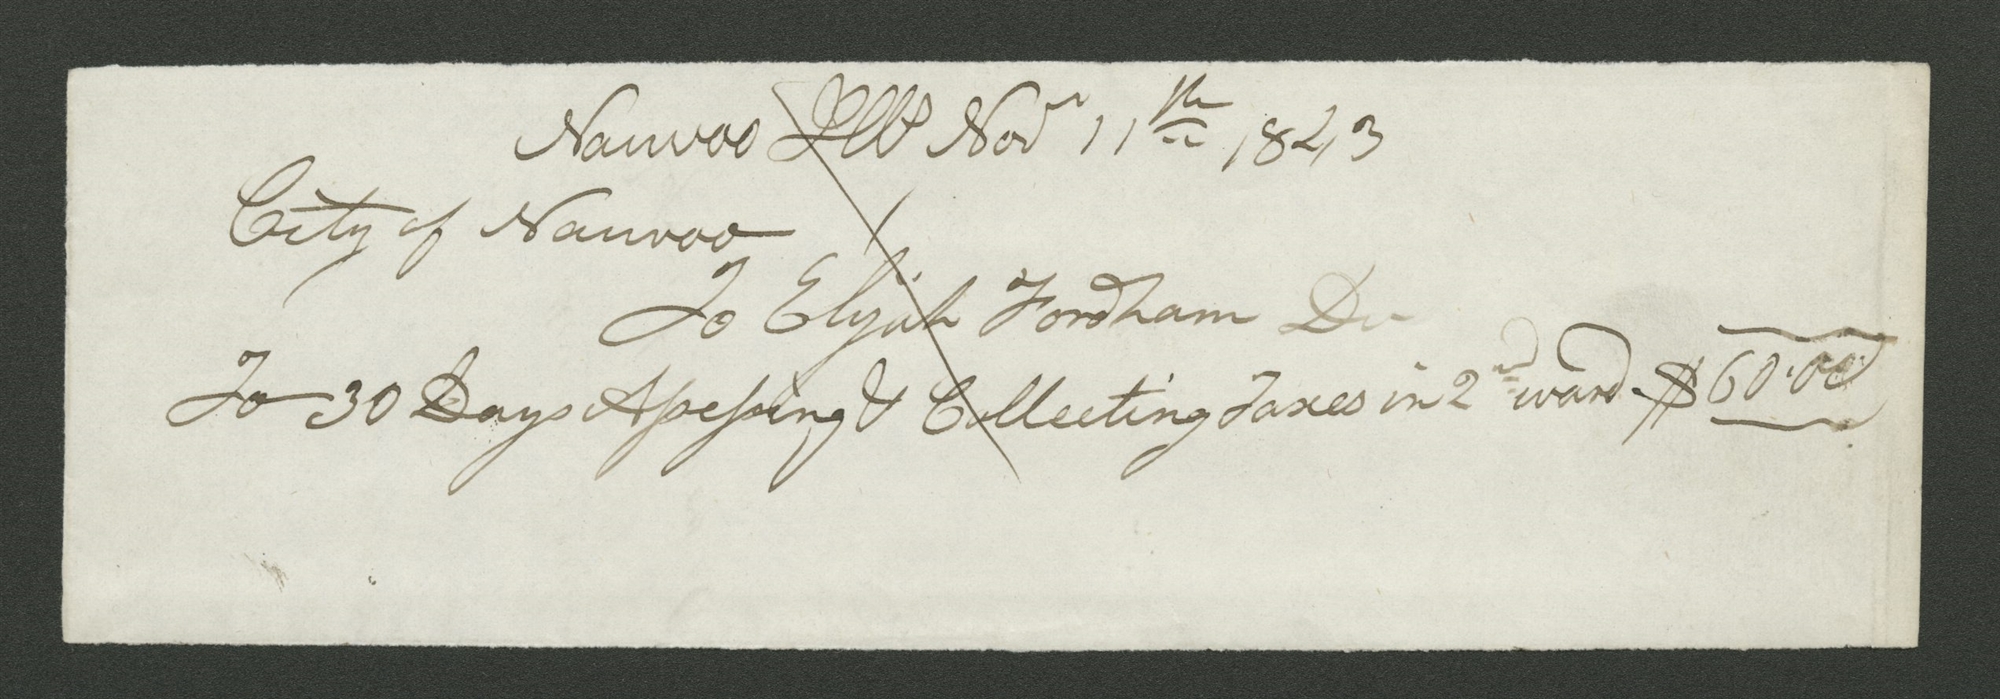 Nauvoo Ills Novr 11th 1843
City of Nauvoo
To Elijah Fordham Dr
To 30 Days Assessing & Collecting Taxes in 2nd ward $60.00